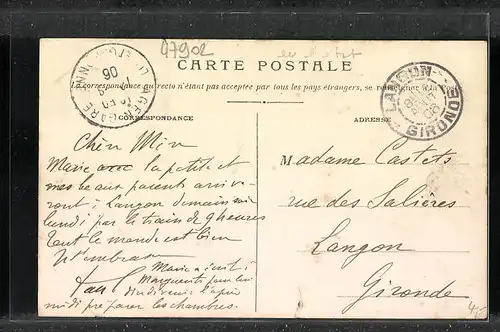 47902
CARTE POSTALE
La correspondance au recto n'étant pas acceptée par tous les pays étrangers, se renseigner à la Poste
CORRESPONDANCE
ADRESSE
LANGON
GIRONDE
Chère Mim
Marie avec la petite et
mes beaux parents arrive-
ront à Langon demain soir
lundi par le train de 9 heures
Tout le monde est bien
Marie a écrit à
Marguerite pour lui
dire de venir l'après
midi préparer les chambres.
Madame Castets
rue des Salières
Langon
Gironde